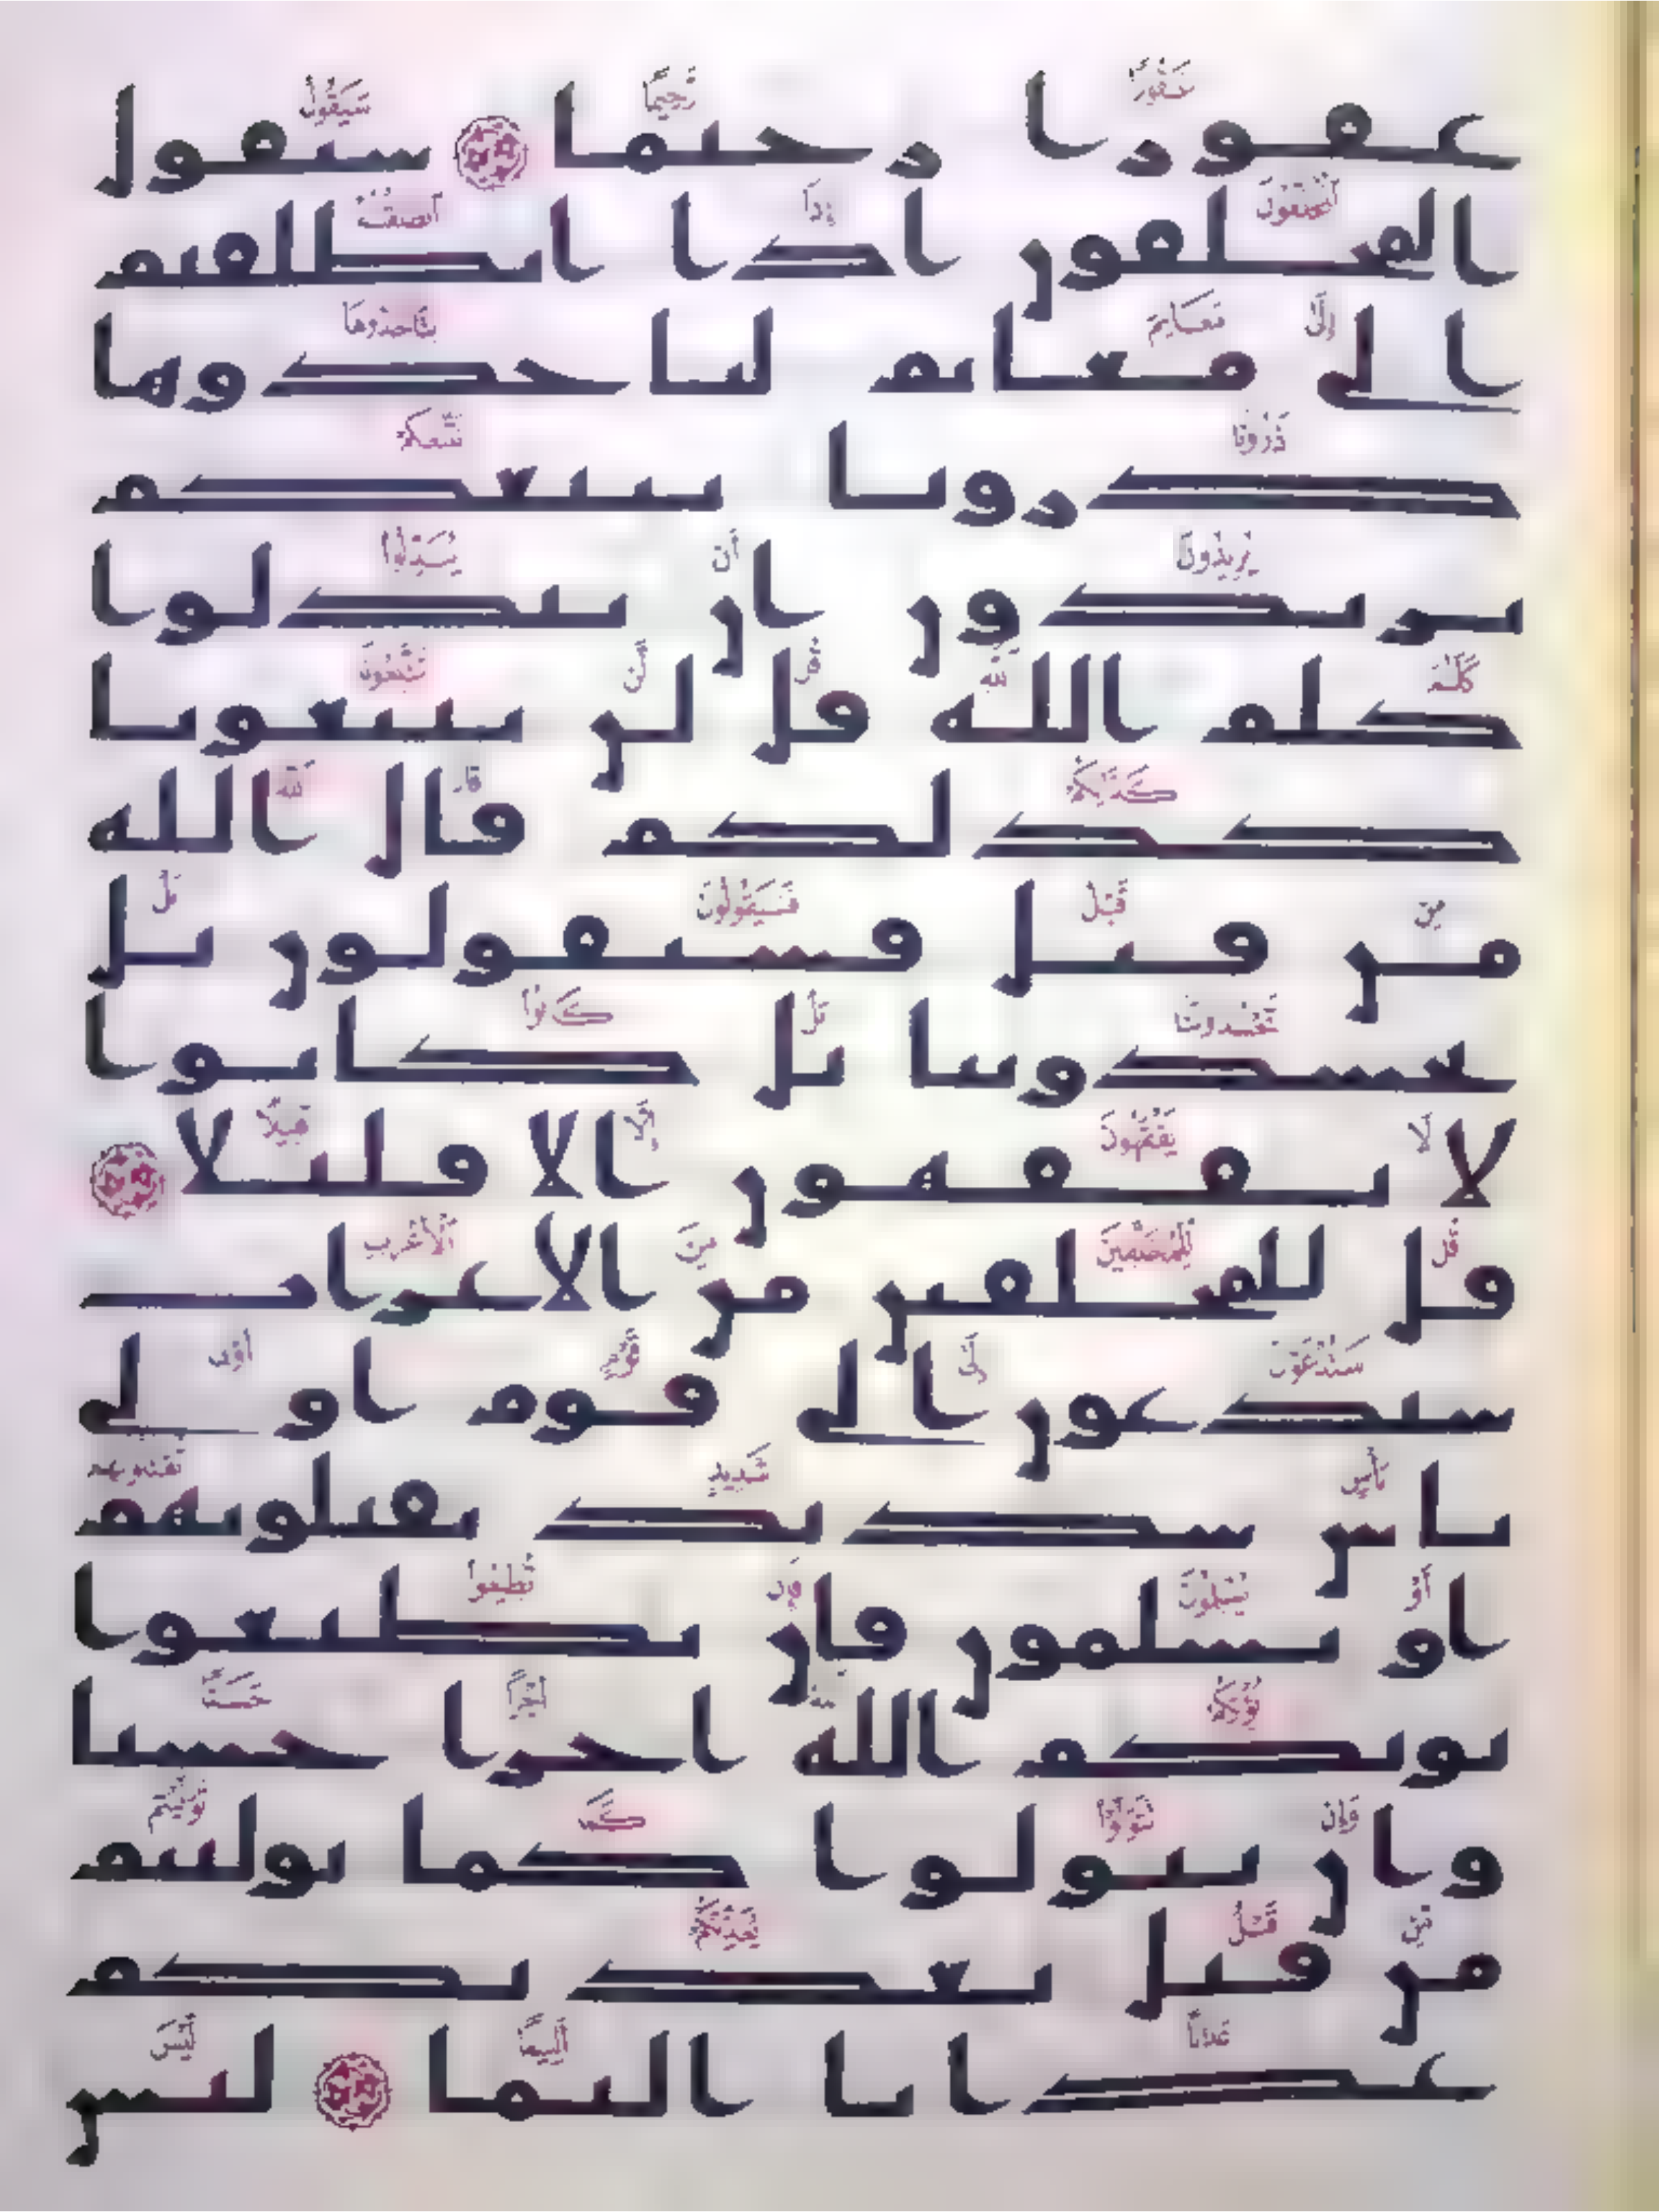 غفورا رحيما سيقول
المخلفون اذا انطلقتم
الى مغانم لتاخذوها
ذرونا نتبعكم
يريدون ان يبدلوا
كلم الله قل لن تتبعونا
كذلكم قال الله
من قبل فسيقولون بل
تحسدوننا بل كانوا
لا يفقهون الا قليلا
قل للمخلفين من الاعراب
ستدعون الى قوم اولى
باس شديد تقتلونهم
او يسلمون فان تطيعوا
يوتكم الله اجرا حسنا
وان تتولوا كما توليتم
من قبل يعذبكم
عذابا اليما ليس